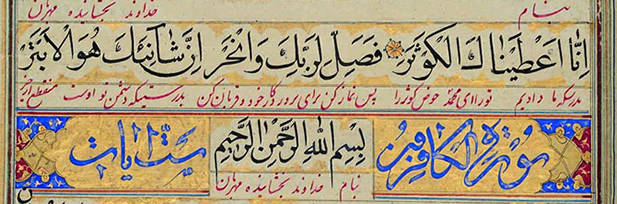 بنام خداوند بخشاینده مهربان
اِنَّا اَعْطَيْنَاكَ الْكَوْثَرَ فَصَلِّ لِرَبِّكَ وَانْحَرْ اِنَّ شَانِئَكَ هُوَ الْاَبْتَرُ
بدرستیکه ما دادیم تو را ای محمد حوض کوثر را پس نماز کن برای پروردگار خود و قربان کن بدرستیکه دشمن تو اوست منقطع از خیر
سورة الكافرين بِسْمِ اللهِ الرَّحْمٰنِ الرَّحِيمِ ست ايات
بنام خداوند بخشاینده مهربان